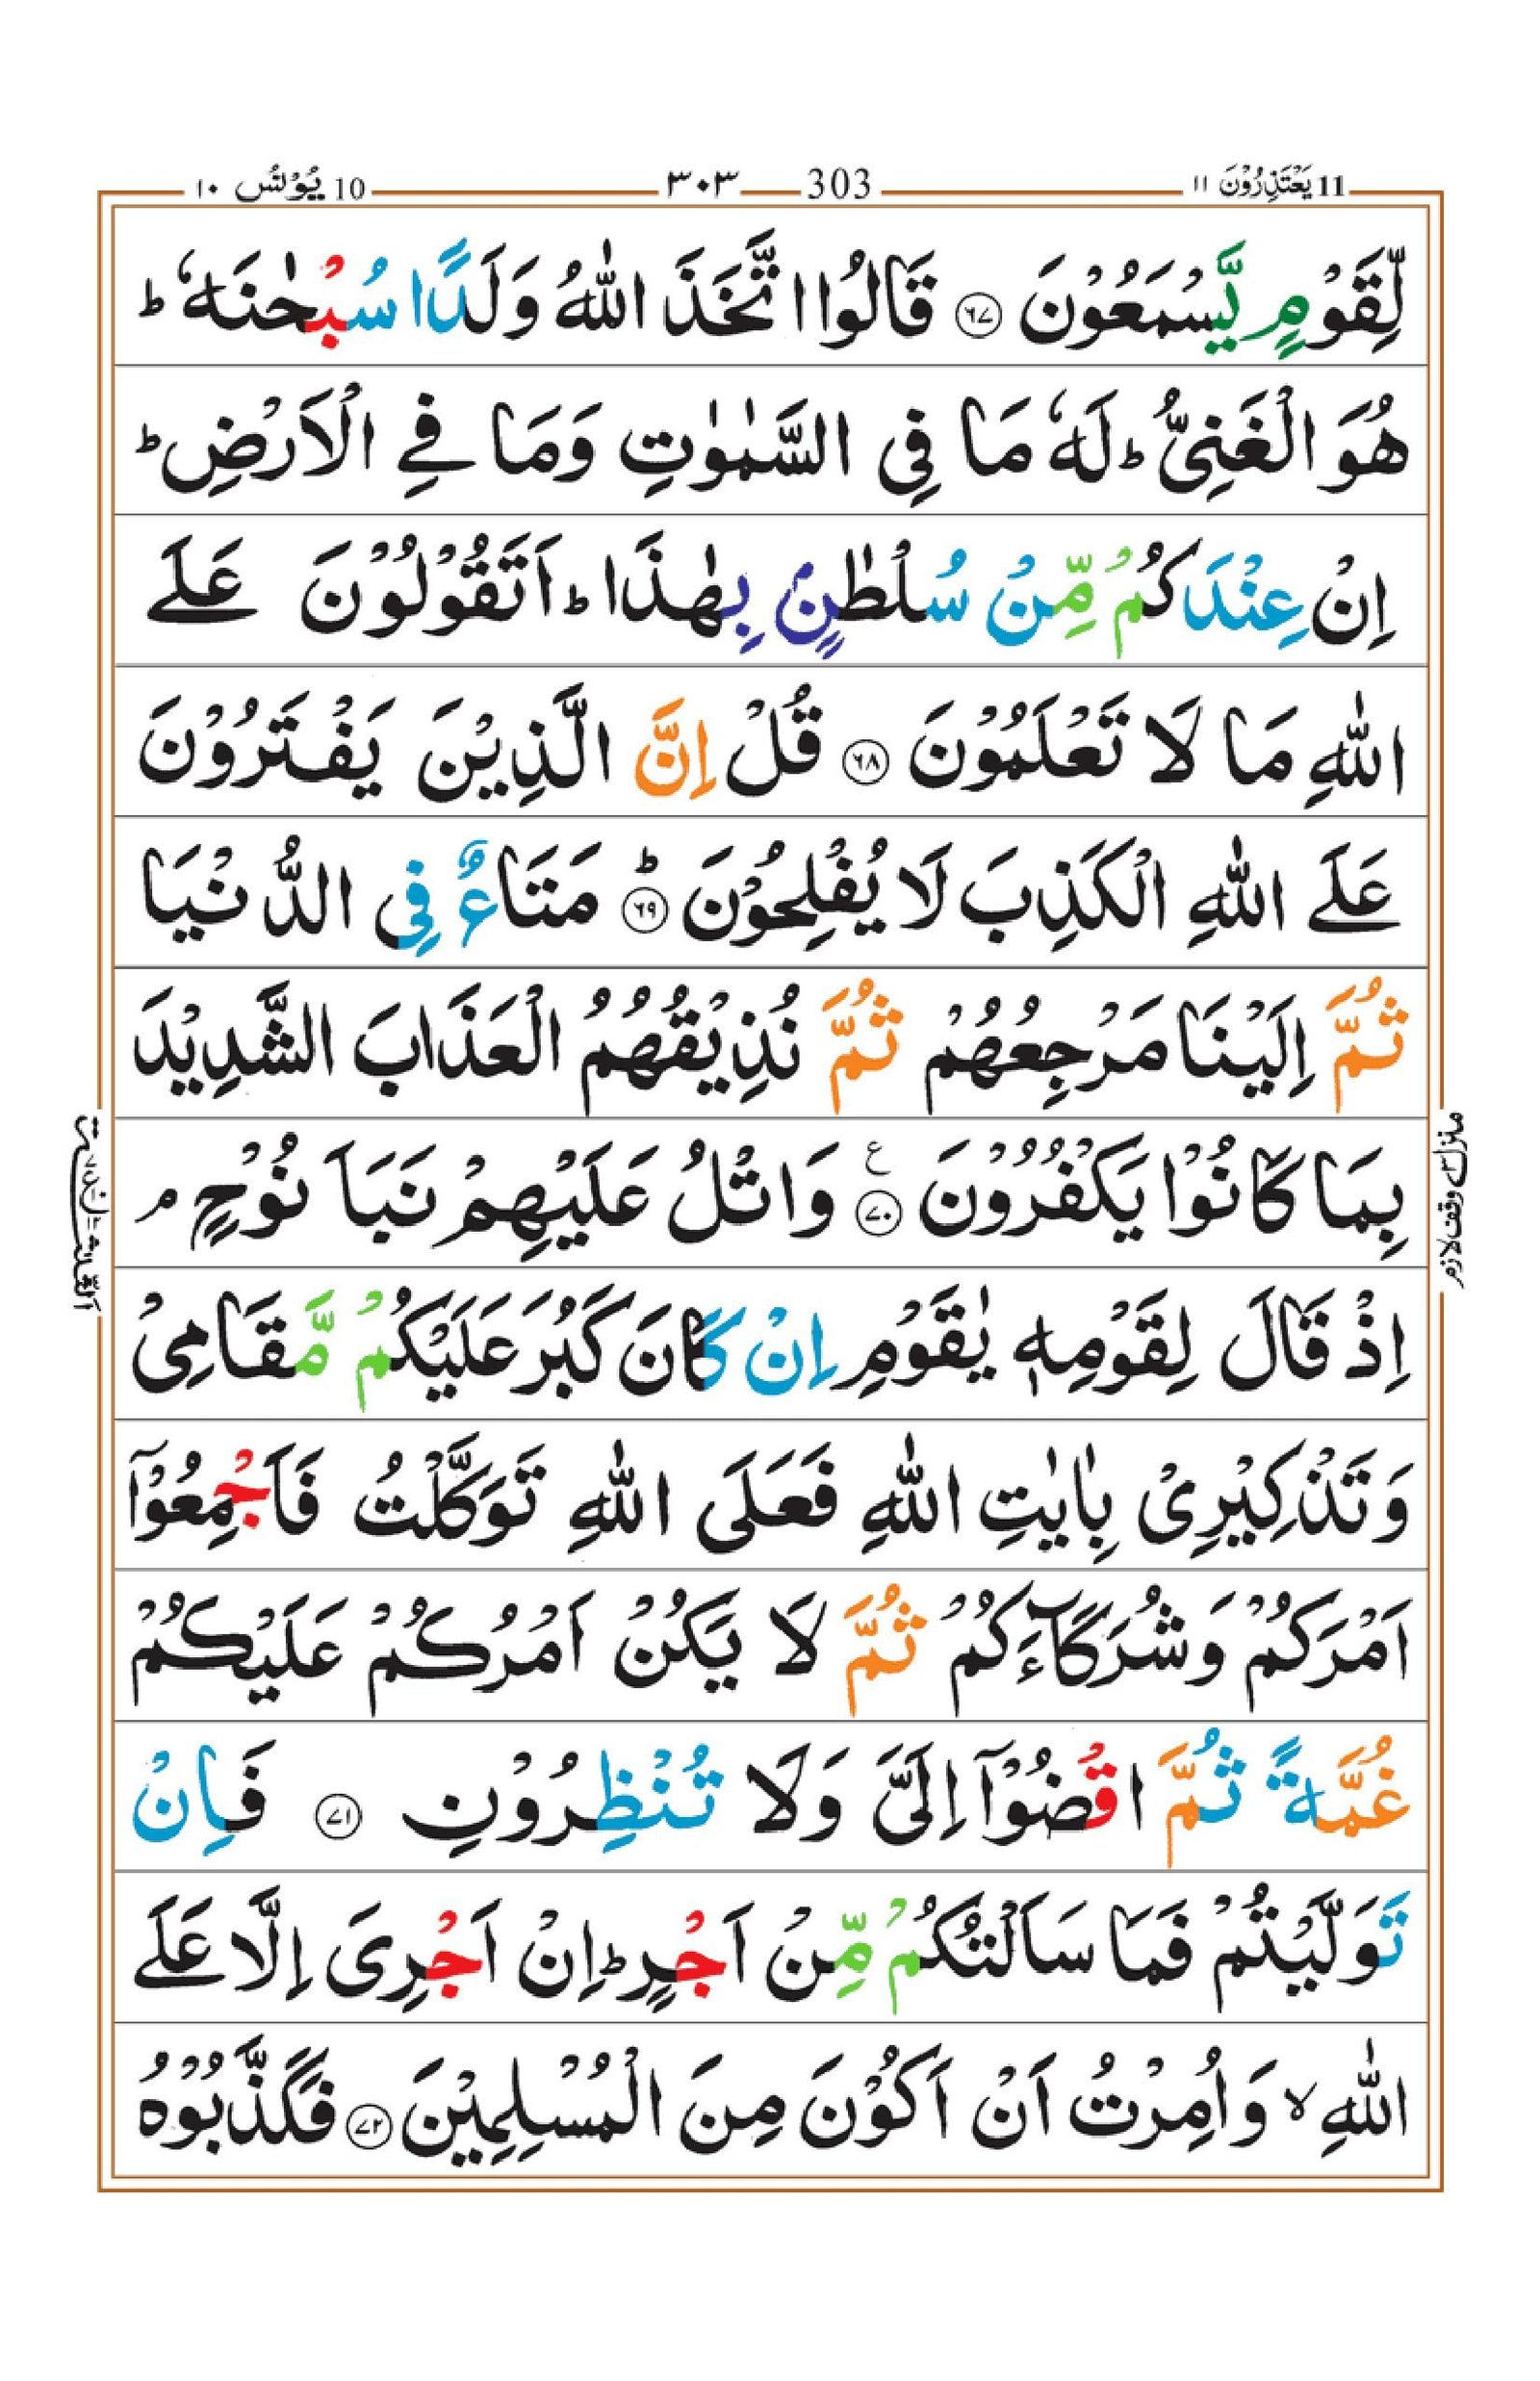 11 یَعْتَذِرُوْنَ ۱۱
303 ۳۰۳
10 یُوْنُس ۱۰
لِّقَوْمٍ یَّسْمَعُوْنَ ﴿۶۷﴾ قَالُوا اتَّخَذَ اللّٰهُ وَلَدًا سُبْحٰنَهٗ ؕ
هُوَ الْغَنِیُّ ؕ لَهٗ مَا فِی السَّمٰوٰتِ وَمَا فِے الْاَرْضِ ؕ
اِنْ عِنْدَكُمْ مِّنْ سُلْطٰنٍۭ بِهٰذَا ؕ اَتَقُوْلُوْنَ عَلَے
اللّٰهِ مَا لَا تَعْلَمُوْنَ ﴿۶۸﴾ قُلْ اِنَّ الَّذِیْنَ یَفْتَرُوْنَ
عَلَے اللّٰهِ الْكَذِبَ لَا یُفْلِحُوْنَ ؕ﴿۶۹﴾ مَتَاعٌ فِی الدُّنْیَا
ثُمَّ اِلَیْنَا مَرْجِعُهُمْ ثُمَّ نُذِیْقُهُمُ الْعَذَابَ الشَّدِیْدَ
بِمَا كَانُوْا یَكْفُرُوْنَ ﴿۷۰﴾ ع وَاتْلُ عَلَیْهِمْ نَبَاَ نُوْحٍ ۘ
منزل ۳ وقف لازم
اِذْ قَالَ لِقَوْمِهٖ یٰقَوْمِ اِنْ كَانَ كَبُرَ عَلَیْكُمْ مَّقَامِیْ
وَتَذْكِیْرِیْ بِاٰیٰتِ اللّٰهِ فَعَلَی اللّٰهِ تَوَكَّلْتُ فَاَجْمِعُوْۤا
اَمْرَكُمْ وَشُرَكَآءَكُمْ ثُمَّ لَا یَكُنْ اَمْرُكُمْ عَلَیْكُمْ
غُمَّةً ثُمَّ اقْضُوْۤا اِلَیَّ وَلَا تُنْظِرُوْنِ ﴿۷۱﴾ فَاِنْ
تَوَلَّیْتُمْ فَمَا سَاَلْتُكُمْ مِّنْ اَجْرٍ ؕ اِنْ اَجْرِیَ اِلَّا عَلَے
اللّٰهِ ۙ وَاُمِرْتُ اَنْ اَكُوْنَ مِنَ الْمُسْلِمِیْنَ ﴿۷۲﴾ فَكَذَّبُوْهُ